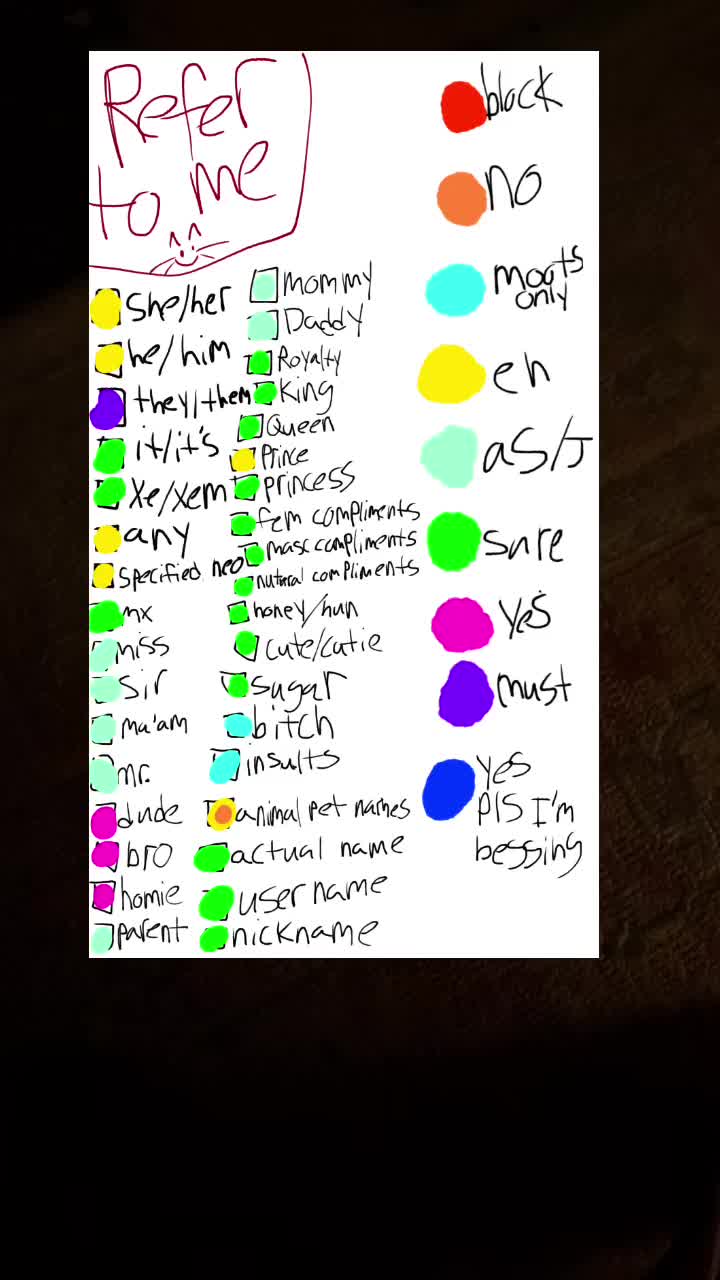 Refer
to me
she/her
he/him
they/them
it/it's
Xe/xem
any
specified neo
mx
miss
sir
ma'am
mr.
dude
bro
homie
parent
mommy
Daddy
Royalty
King
Queen
Prince
princess
fem compliments
masc compliments
nutural compliments
honey/hun
cute/cutie
sugar
bitch
insults
animal pet names
actual name
username
nickname
block
no
moots
only
eh
aS/J
sure
yes
must
yes
PlS I'm
bessing